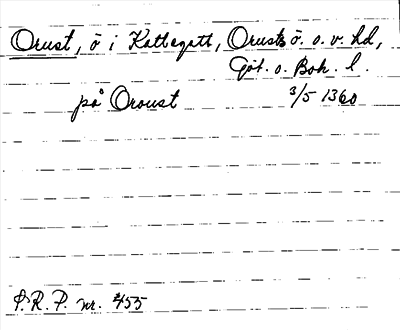 Orust, ö i Kattegatt, Orusts ö. o. v. hd,
Göt. o. Boh. l.
på Oroust 3/5 1360
S.R.P. nr. 455